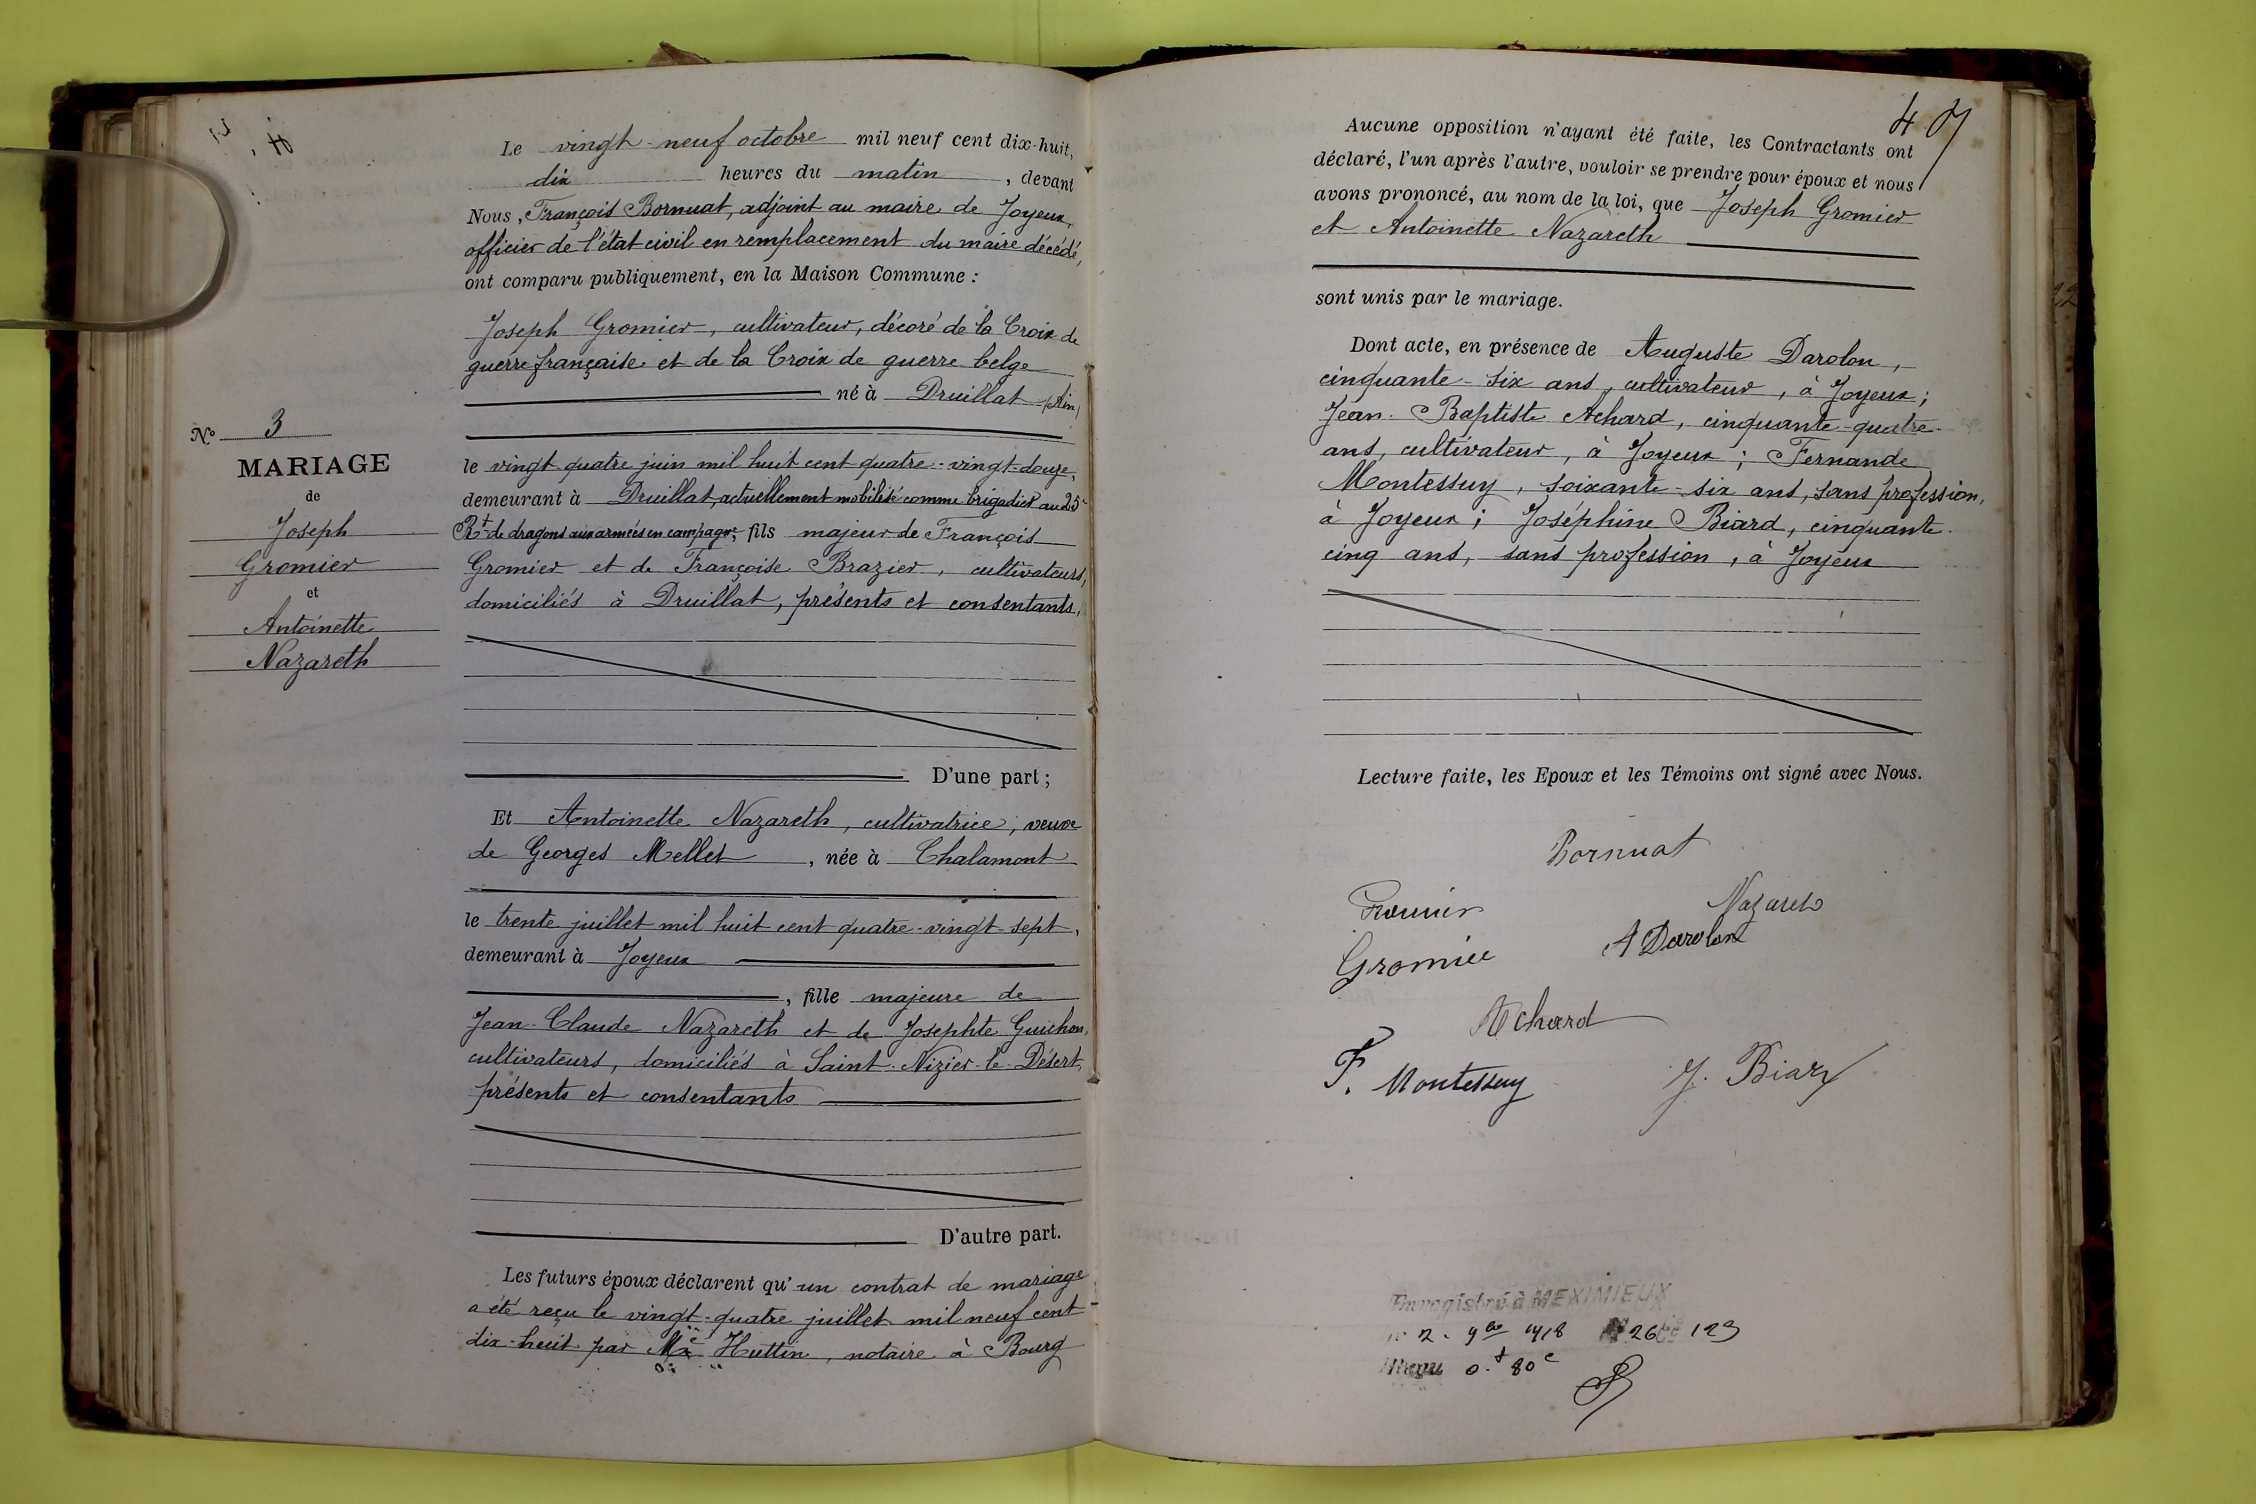 Le vingt-neuf octobre mil neuf cent dix-huit,
dix heures du matin, devant
Nous, François Bornuat, adjoint au maire de Joyeux,
officier de l'état civil en remplacement du maire décédé,
ont comparu publiquement, en la Maison Commune :
Joseph Gromier, cultivateur, décoré de la Croix de
guerre française et de la Croix de guerre belge
né à Druillat (Ain)
le vingt quatre juin mil huit cent quatre-vingt-douze,
demeurant à Druillat, actuellement mobilisé comme brigadier au 25e
Rt de dragons aux armées en campagne, fils majeur de François
Gromier et de Françoise Brazier, cultivateurs,
domiciliés à Druillat, présents et consentants,
D'une part ;
Et Antoinette Nazareth, cultivatrice, veuve
de Georges Mellet, née à Chalamont
le trente juillet mil huit cent quatre-vingt-sept,
demeurant à Joyeux
, fille majeure de
Jean-Claude Nazareth et de Josephte Guichon,
cultivateurs, domiciliés à Saint-Nizier-le-Désert,
présents et consentants
D'autre part.
Les futurs époux déclarent qu'un contrat de mariage
a été reçu le vingt-quatre juillet mil neuf cent
dix-huit par Me Huttin, notaire à Bourg
N° 3
MARIAGE
de
Joseph
Gromier
et
Antoinette
Nazareth
Aucune opposition n'ayant été faite, les Contractants ont
déclaré, l'un après l'autre, vouloir se prendre pour époux et nous
avons prononcé, au nom de la loi, que Joseph Gromier
et Antoinette Nazareth
sont unis par le mariage.
Dont acte, en présence de Auguste Darolon,
cinquante-six ans, cultivateur, à Joyeux ;
Jean-Baptiste Achard, cinquante-quatre
ans, cultivateur, à Joyeux ; Fernande
Montessuy, soixante-six ans, sans profession,
à Joyeux ; Joséphine Biard, cinquante-
cinq ans, sans profession, à Joyeux
Lecture faite, les Epoux et les Témoins ont signé avec Nous.
Bornuat
Nazareth
Gromier
A Darolon
Achard
F. Montessuy
J. Biard
Enregistré à MEXIMIEUX
2. 9bre 1918 26 123
Reçu 0.f 80c